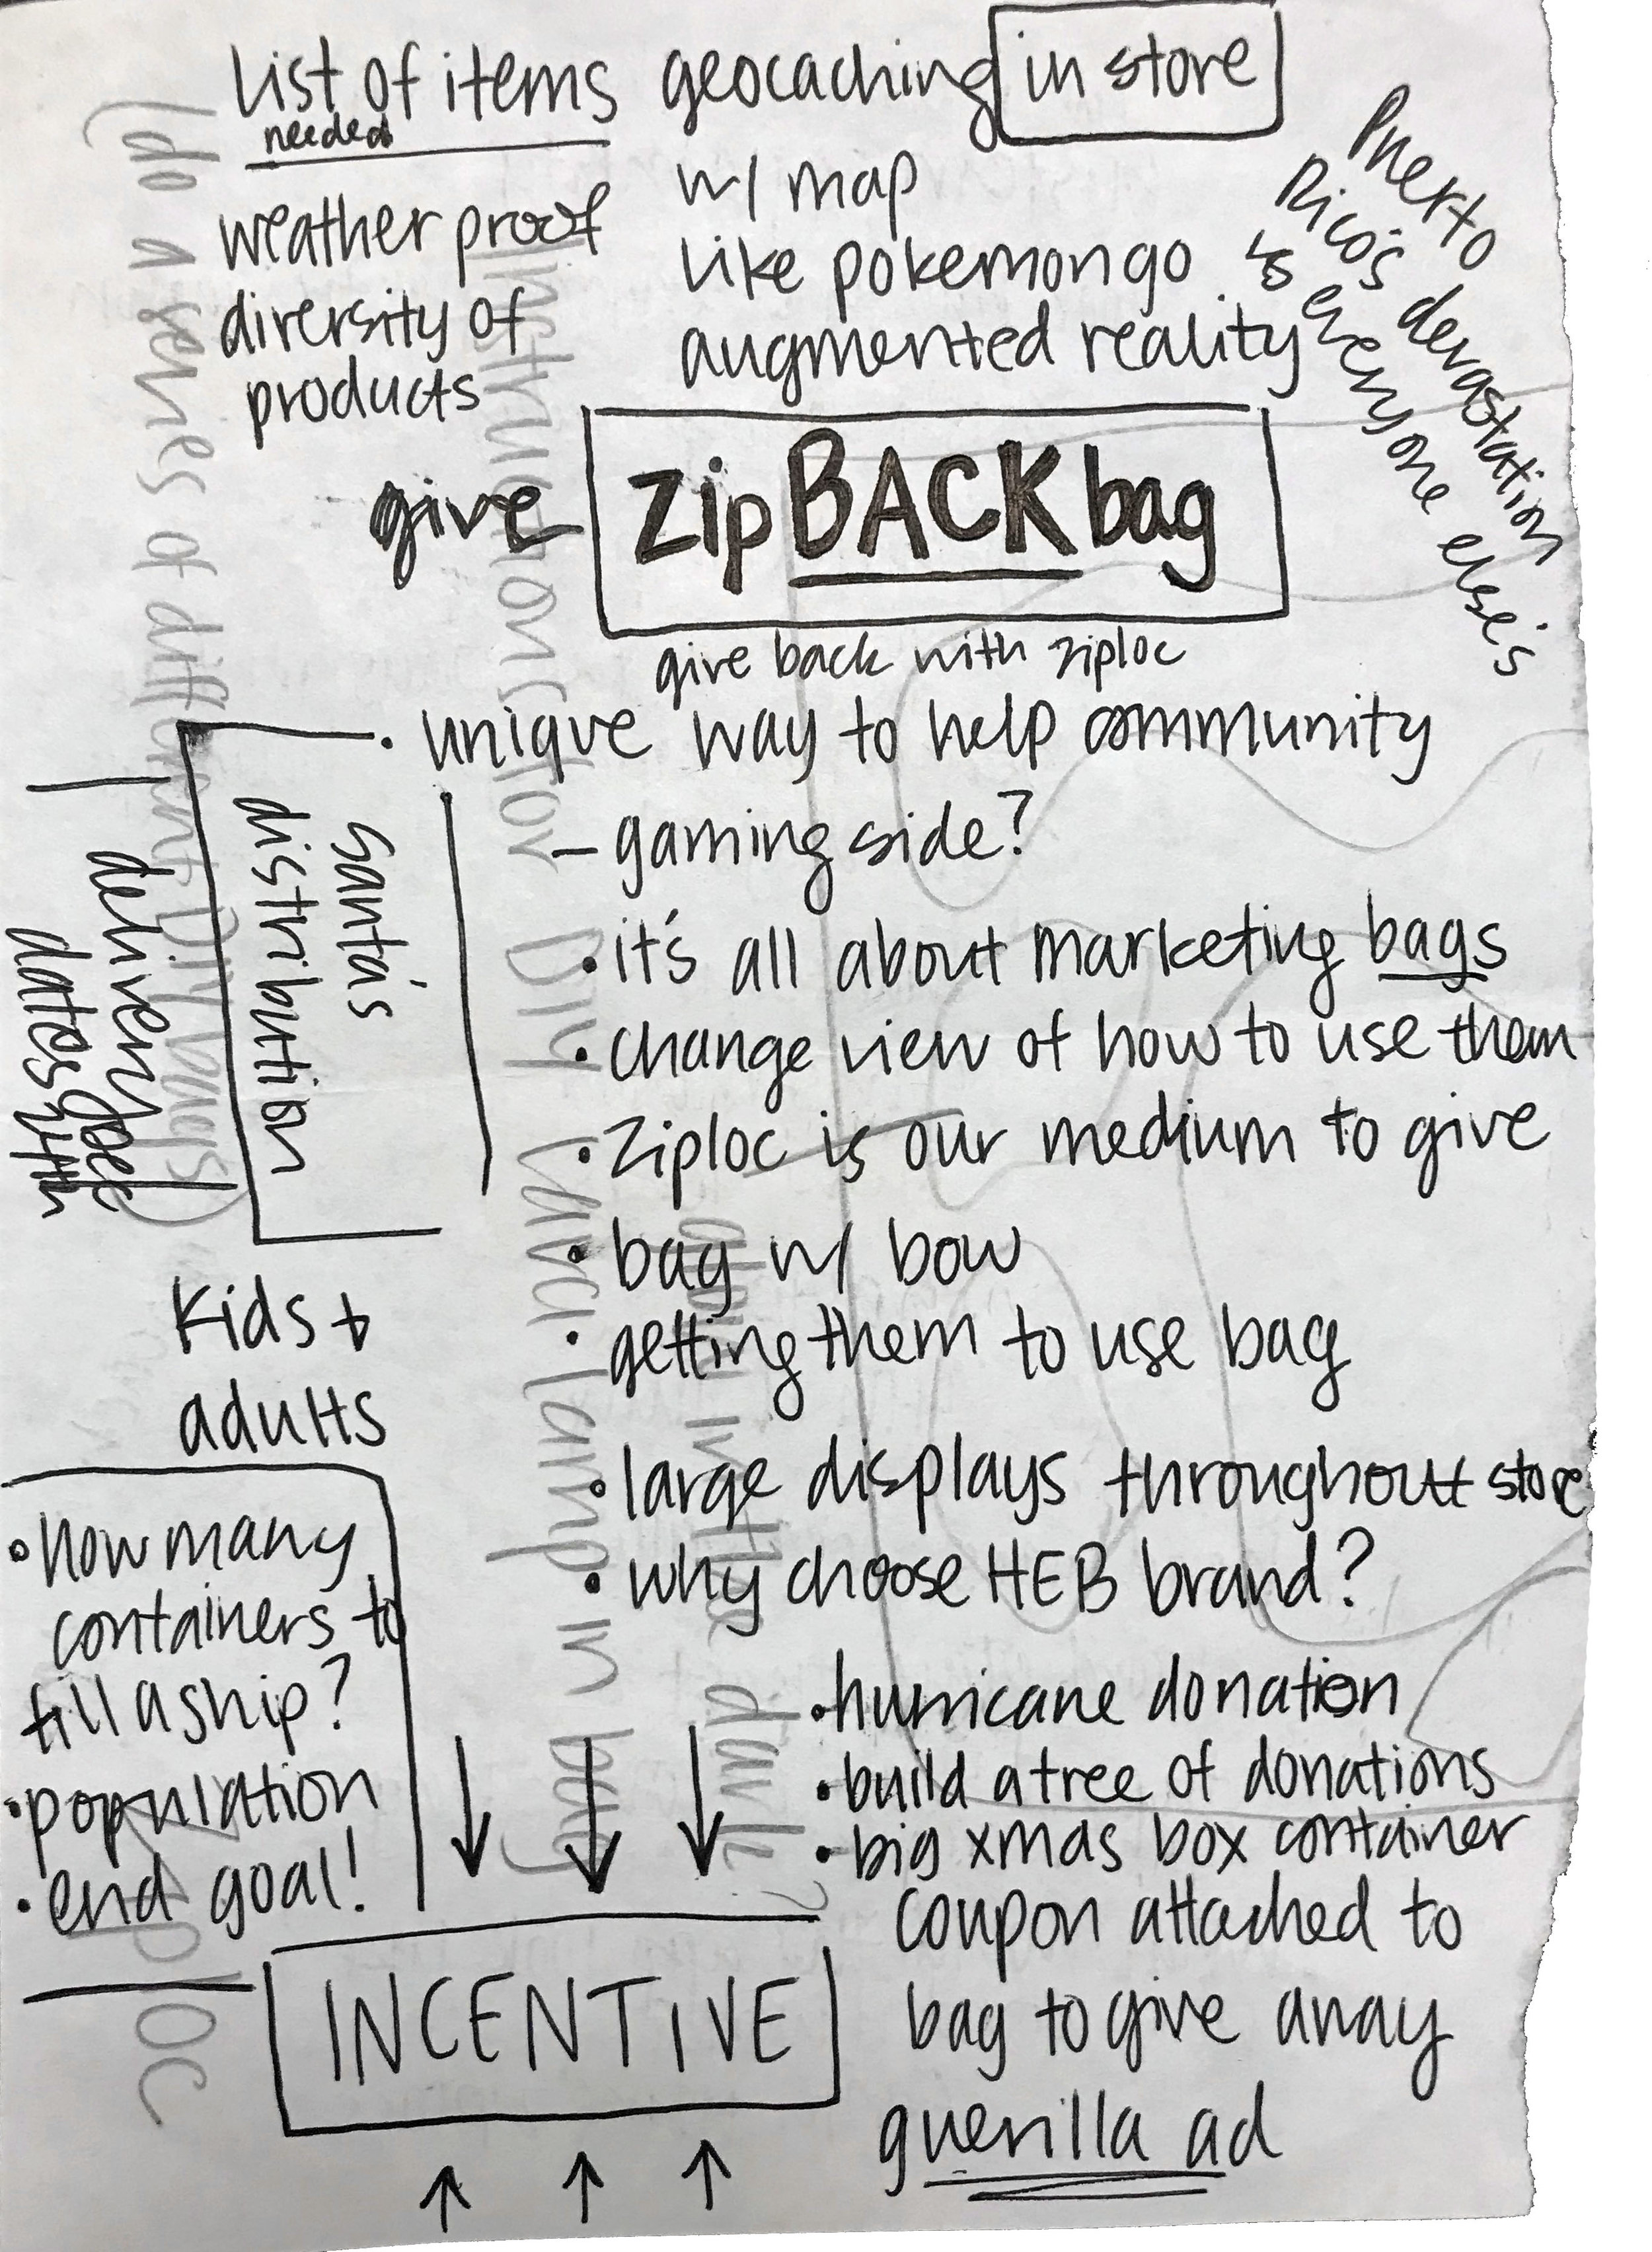 list of items
needed
weather proof
diversity of
products
geocaching in store
w/ map
like pokemon go
augmented reality
Puerto
Rico's devastation
vs everyone else's
give zipBACKbag
give back with ziploc
• unique way to help community
– gaming side?
• it's all about marketing bags
• change view of how to use them
• Ziploc is our medium to give
• bag w/ bow
• getting them to use bag
• large displays throughout store
• why choose HEB brand?
• hurricane donation
• build a tree of donations
• big xmas box container
coupon attached to
bag to give away
guerilla ad
Santa's
distribution
delivery
dates Dec
24th
Kids +
adults
• how many
containers to
fill a ship?
• population
• end goal!
INCENTIVE
(do a series of different DIY bags)
Instruction for DIY lava lamp in bag
in the dark?